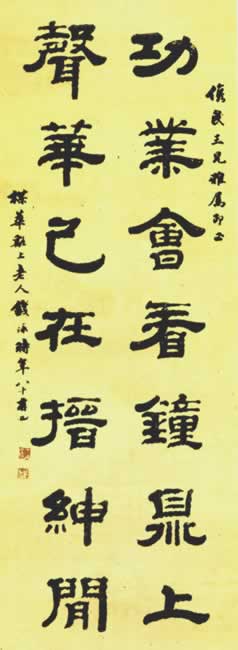 民五兄雅屬即正
功業會看鐘鼎上
聲華已在搢紳閒
楳華谿上老人錢泳時年八十有